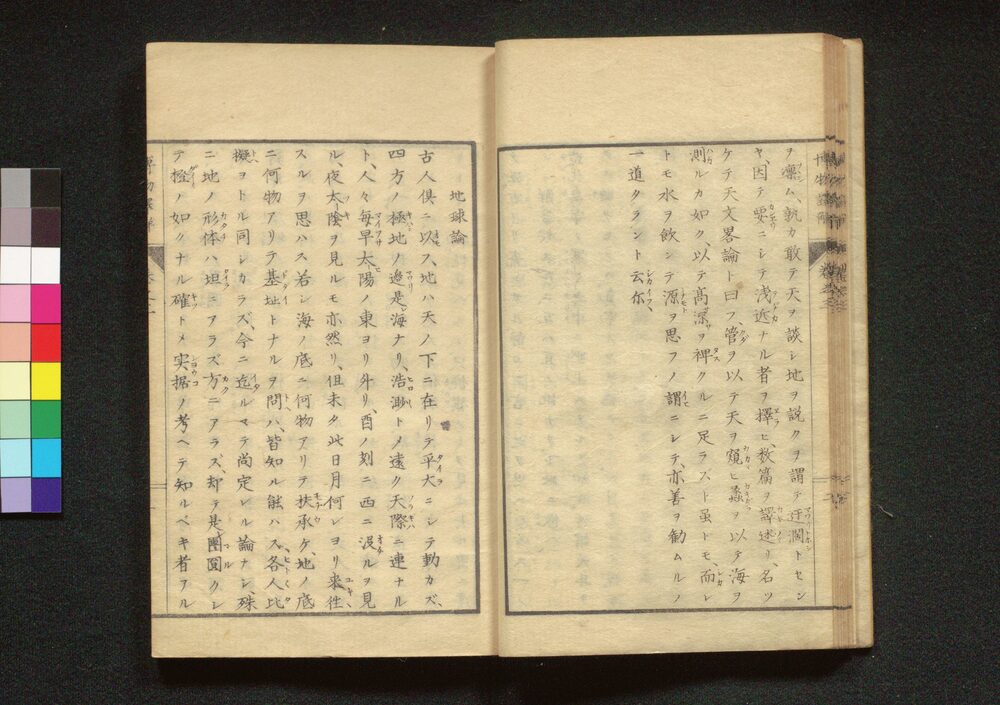 ヲ凛ム、孰カ敢テ天ヲ談シ地ヲ説クヲ謂テ迂濶トセン
ヤ、因テ要ニシテ浅近ナル者ヲ擇ヒ、数篇ヲ譯述リ、名ツ
ケテ天文畧論ト曰フ管ヲ以テ天ヲ窺ヒ蠡ヲ以テ海ヲ
測ルカ如ク、以テ高深ヲ裨クルニ足ラズト虽トモ、而レ
トモ水ヲ飲ンテ源ヲ思フノ謂ニシテ、亦善ヲ勧ムルノ
一道タラント云尓、
地球論
古人俱ニ以フ、地ハ天ノ下ニ在リテ平大ニシテ動カズ、
四方ノ極地ノ邉是海ナリ、浩渺トメ遠ク天際ニ連ナル
ト、人々毎早太陽ノ東ヨリ外リ、酉ノ刻ニ西ニ没ルヲ見
ル、夜太陰ヲ見ルモ亦然リ、但未タ此日月何レヨリ来徃
スルヲ思ハス若シ海ノ底ニ何物アリテ扶承ケ、地ノ底
ニ何物アリテ基址トナルヲ問ハ、皆知ル能ハス、各人比
擬ヲトル同シカラズ、今ニ迄ルマテ尚定レル論ナシ、殊
ニ地ノ形体ハ坦ニアラズ方ニアラズ、却テ是圑圓クシ
テ橙ノ如クナル確トメ実据ノ考ヘテ知ルベキ者ヲル